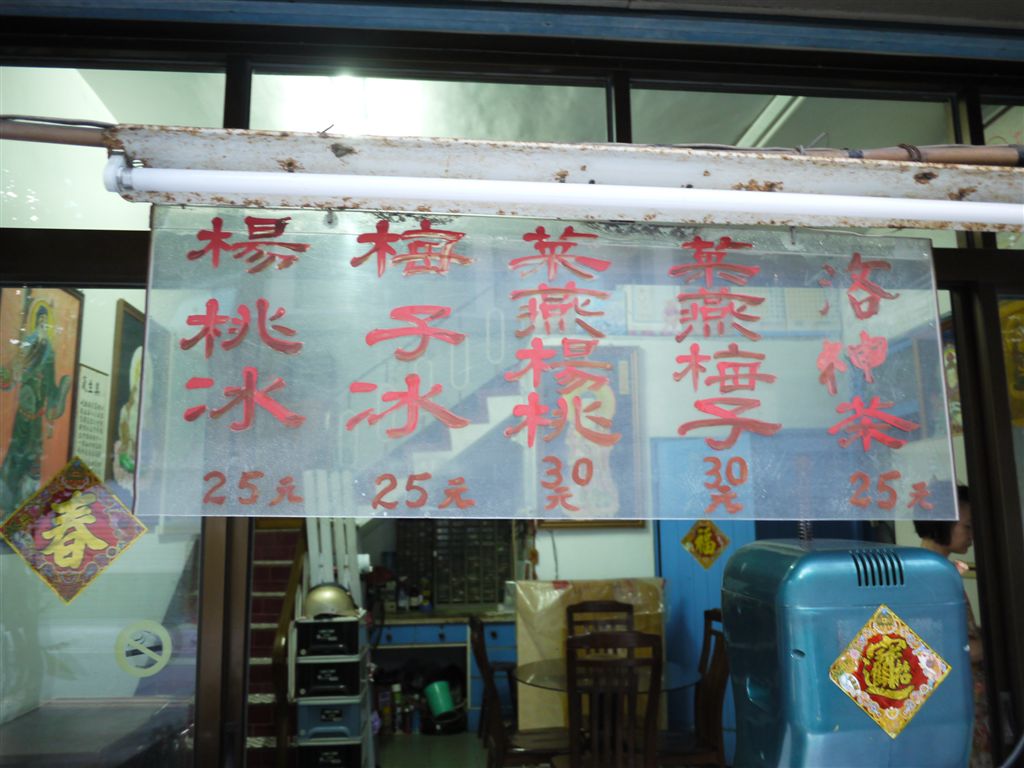 楊桃冰 25元
梅子冰 25元
菜燕楊桃 30元
菜燕梅子 30元
洛神茶 25元
春
福
招財進寶